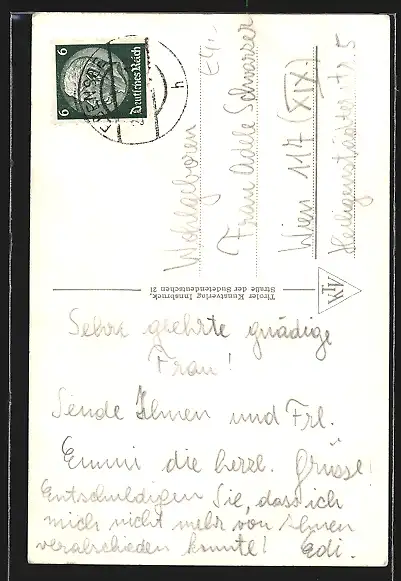 Sehre geehrte gnädige
Frau!
Sende Ihnen und Frl.
Emmi die herzl. Grüsse!
Entschuldigen Sie, dass ich
mich nicht mehr von Ihnen
verabschieden konnte! Edi.
Tiroler Kunstverlag Innsbruck,
Straße der Sudetendeutschen 21
Wohlgeboren
Frau Adele Schwasser
Wien 117 (XIX)
Heiligenstädter Str. 5
6 6
Deutsches Reich
h